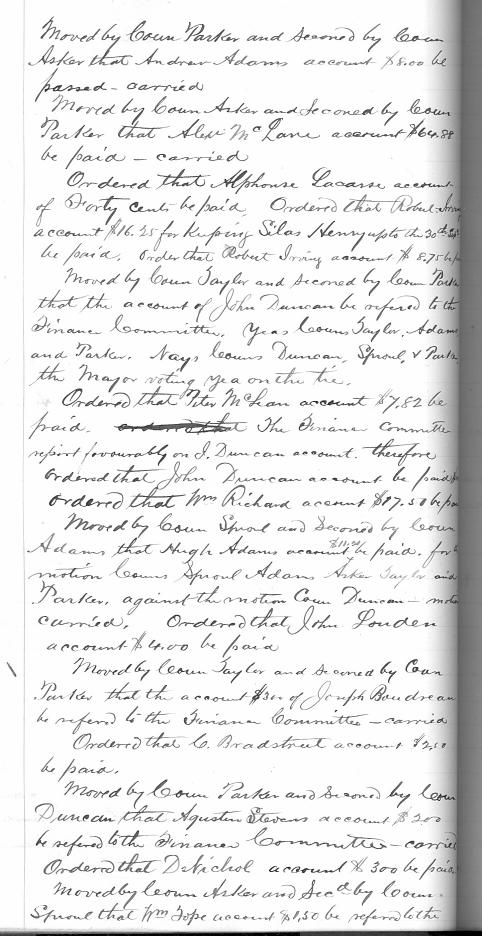 Moved by Coun Parker and Seconed by Coun
Asker that Andrew Adams account $8.00 be
passed - carried
Moved by Coun Asker and Seconed by Coun
Parker that Alexr McLane account $64.88
be paid - carried
Ordered that Alphonse Lacasse account
of Forty cents be paid Ordered that Robert
account $16.25 for keeping Silas Henry up to the 30th
be paid. order that Robert Irving account $ 8.75 be
Moved by Coun Taylor and seconed by Coun Park
that the account of John Duncan be refered to the
Finance Committee. Yeas Couns Taylor, Adams
and Parker. Nays Couns Duncan, Sproul, &
the Mayor voting yea on the tie.
Ordered that Peter McLean account $7.82 be
paid. ordered that The Finance committe
report favourably on J. Duncan account. therefore
ordered that John Duncan account be paid
ordered that Wm Richard account $17.50 be
Moved by Coun Sproul and Seconed by Coun
Adams that Hugh Adams account be paid. for
motion Couns Sproul Adams Asker Taylor and
Parker. against the motion Coun Duncan - motion
carried. Ordered that John Louden
account $4.00 be paid
Moved by Coun Taylor and seconed by Coun
Parker that the account of Joseph Boudreau
be refered to the Finance Committee - carried
Ordered that C. Bradstreet account $2.50
be paid.
Moved by Coun Parker and Seconed by Coun
Duncan that Agusten Stevens account $ 2.00
be refered to the Finance Committee - carried
Ordered that D Nichol account $ 3.00 be paid
Moved by Coun Asker and Secd by Coun
Sproul that Wm Tope account $1.50 be refered to the